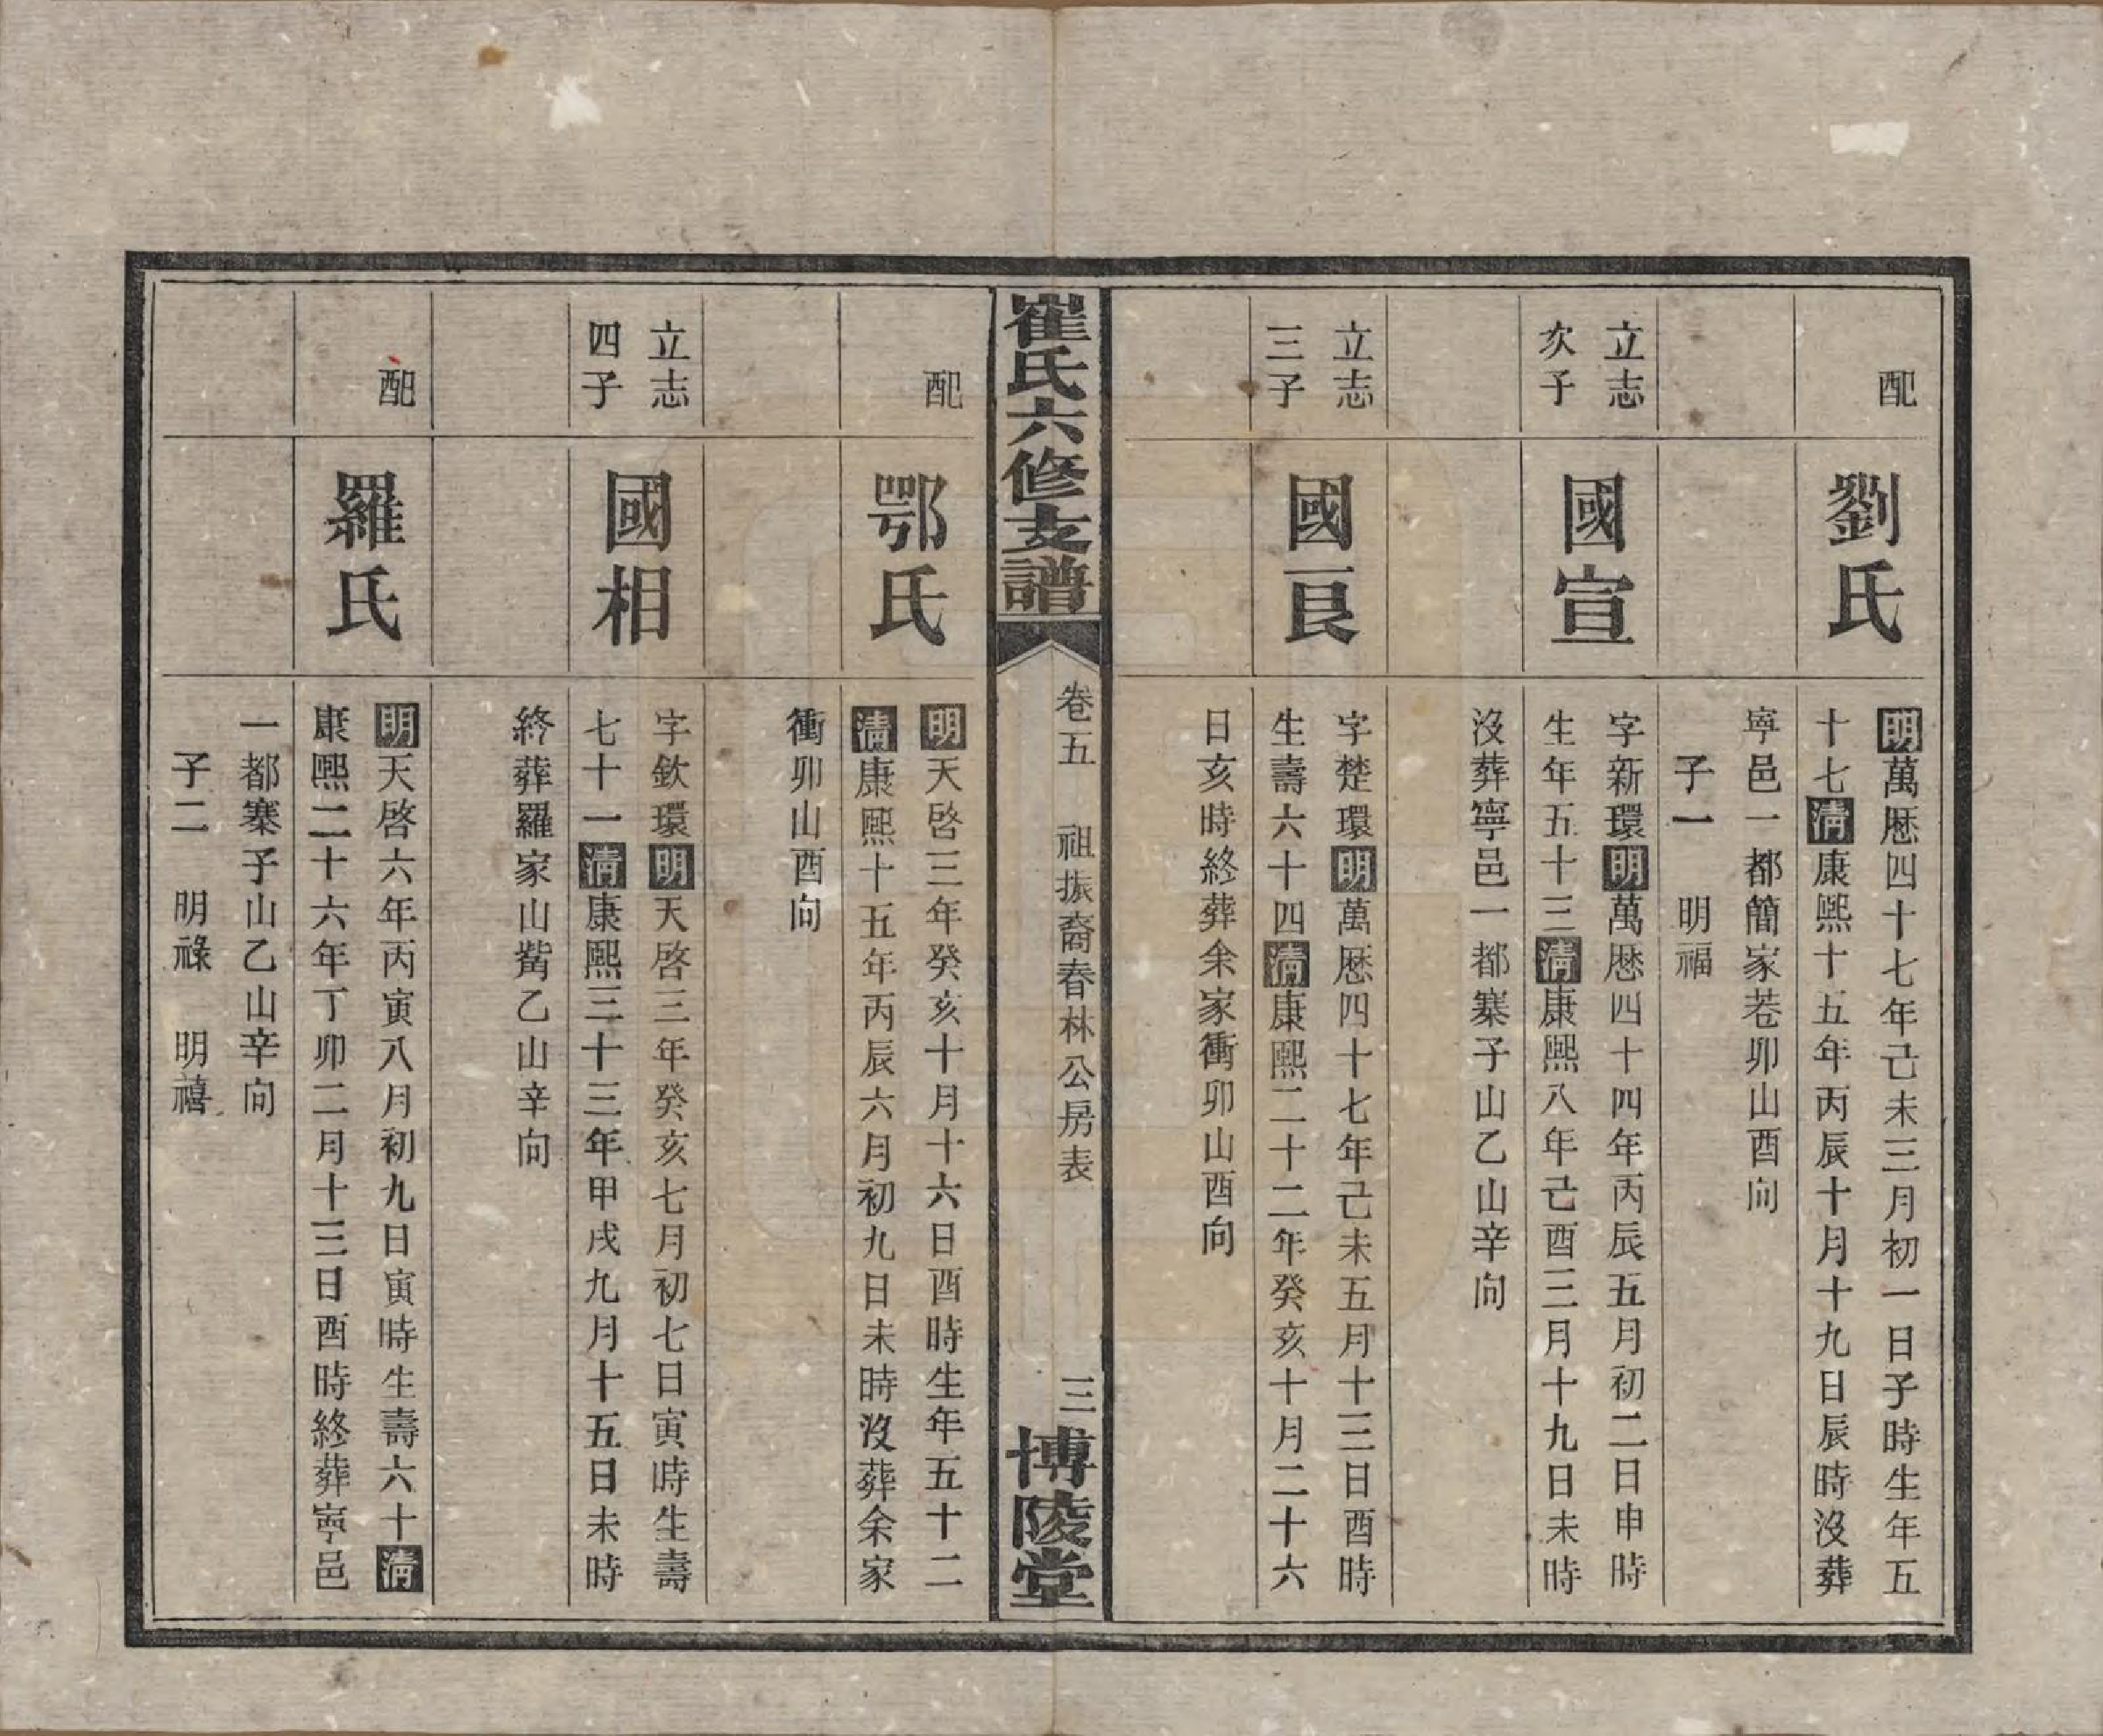 配
劉氏
明萬厯四十七年己未三月初一日子時生年五
十七清康熙十五年丙辰十月十九日辰時沒葬
寧邑一都簡家巷卯山酉向
子一 明福
立志
次子
國宣
字新環明萬厯四十四年丙辰五月初二日申時
生年五十三清康熙八年己酉三月十九日未時
沒葬寧邑一都寨子山乙山辛向
立志
三子
國良
字楚環明萬厯四十七年己未五月十三日酉時
生壽六十四清康熙二十二年癸亥十月二十六
日亥時終葬余家衝卯山酉向
崔氏六修支譜
卷五 祖振裔春林公房表
三
博陵堂
配
鄂氏
明天啓三年癸亥十月十六日酉時生年五十二
清康熙十五年丙辰六月初九日未時沒葬余家
衝卯山酉向
立志
四子
國相
字欽環明天啓三年癸亥七月初七日寅時生壽
七十一清康熙三十三年甲戌九月十五日未時
終葬羅家山觜乙山辛向
配
羅氏
明天啓六年丙寅八月初九日寅時生壽六十清
康熙二十六年丁卯二月十三日酉時終葬寧邑
一都寨子山乙山辛向
子二 明祿 明禧